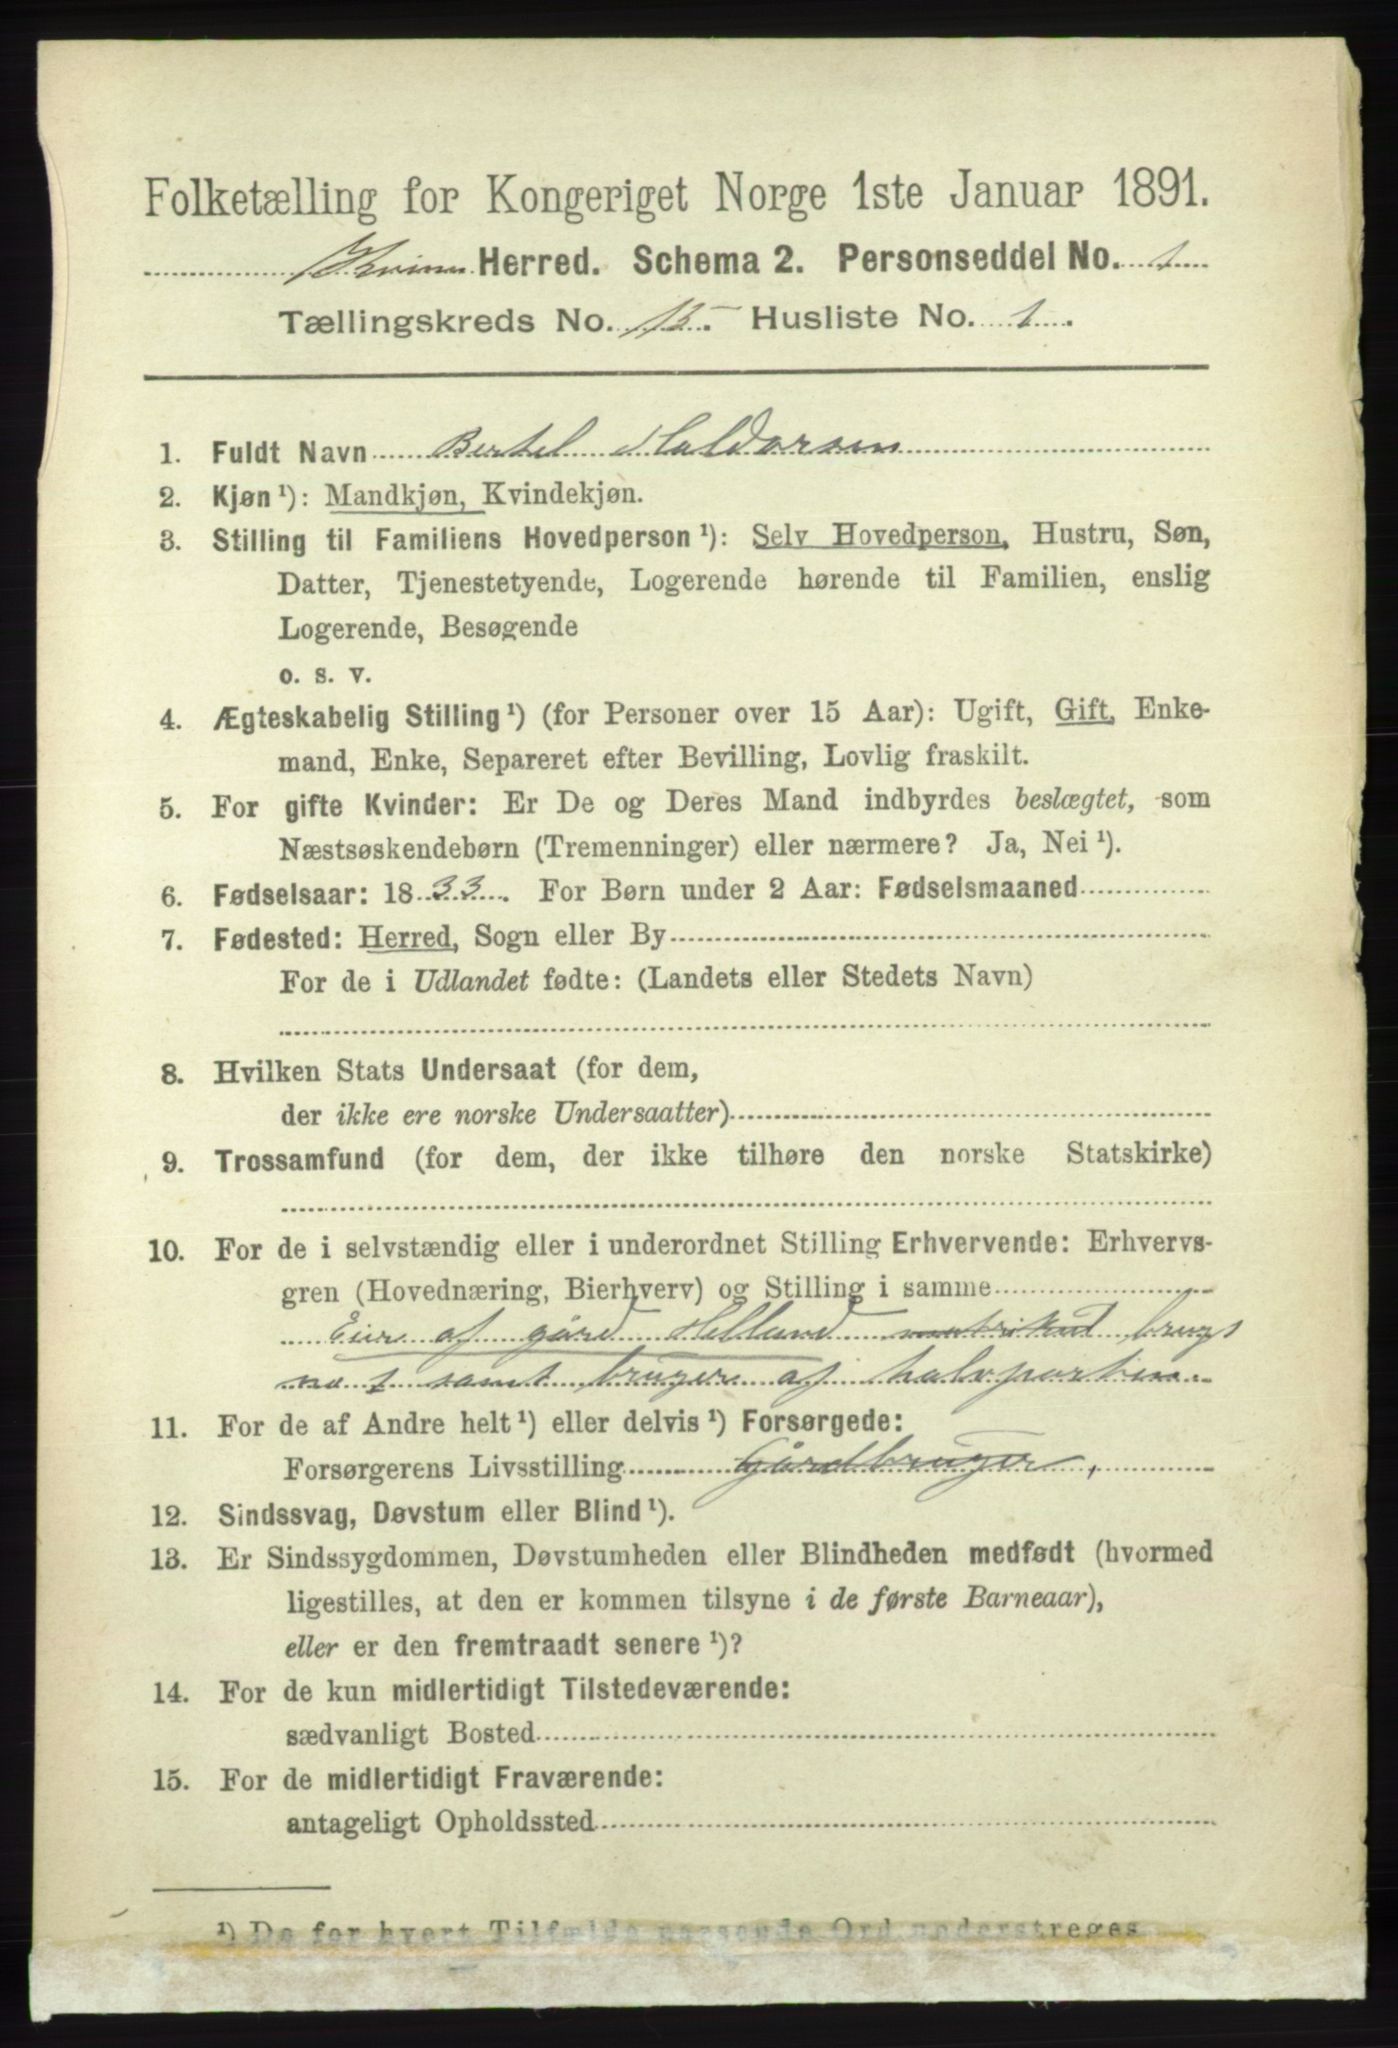 Folketælling for Kongeriget Norge 1ste Januar 1891.
Herred. Schema 2. Personseddel No. 1
Tællingskreds No. 13. Husliste No. 1.
1. Fuldt Navn Bertel Haldorsen
2. Kjøn ¹): Mandkjøn, Kvindekjøn.
3. Stilling til Familiens Hovedperson ¹): Selv Hovedperson, Hustru, Søn,
Datter, Tjenestetyende, Logerende hørende til Familien, enslig
Logerende, Besøgende
o. s. v.
4. Ægteskabelig Stilling ¹) (for Personer over 15 Aar): Ugift, Gift, Enke-
mand, Enke, Separeret efter Bevilling, Lovlig fraskilt.
5. For gifte Kvinder: Er De og Deres Mand indbyrdes beslægtet, som
Næstsøskendebørn (Tremenninger) eller nærmere? Ja, Nei ¹).
6. Fødselsaar: 1833. For Børn under 2 Aar: Fødselsmaaned
7. Fødested: Herred, Sogn eller By
For de i Udlandet fødte: (Landets eller Stedets Navn)
8. Hvilken Stats Undersaat (for dem,
der ikke ere norske Undersaatter)
9. Trossamfund (for dem, der ikke tilhøre den norske Statskirke)
10. For de i selvstændig eller i underordnet Stilling Erhvervende: Erhvervs-
gren (Hovednæring, Bierhverv) og Stilling i samme
Eier af gård Helland matrikul brugs
no 1 samt bruger af halvparten.
11. For de af Andre helt ¹) eller delvis ¹) Forsørgede:
Forsørgerens Livsstilling Gårdbruger,
12. Sindssvag, Døvstum eller Blind ¹).
13. Er Sindssygdommen, Døvstumheden eller Blindheden medfødt (hvormed
ligestilles, at den er kommen tilsyne i de første Barneaar),
eller er den fremtraadt senere ¹)?
14. For de kun midlertidigt Tilstedeværende:
sædvanligt Bosted
15. For de midlertidigt Fraværende:
antageligt Opholdssted
¹) De for hvert Tilfælde passende Ord understreges